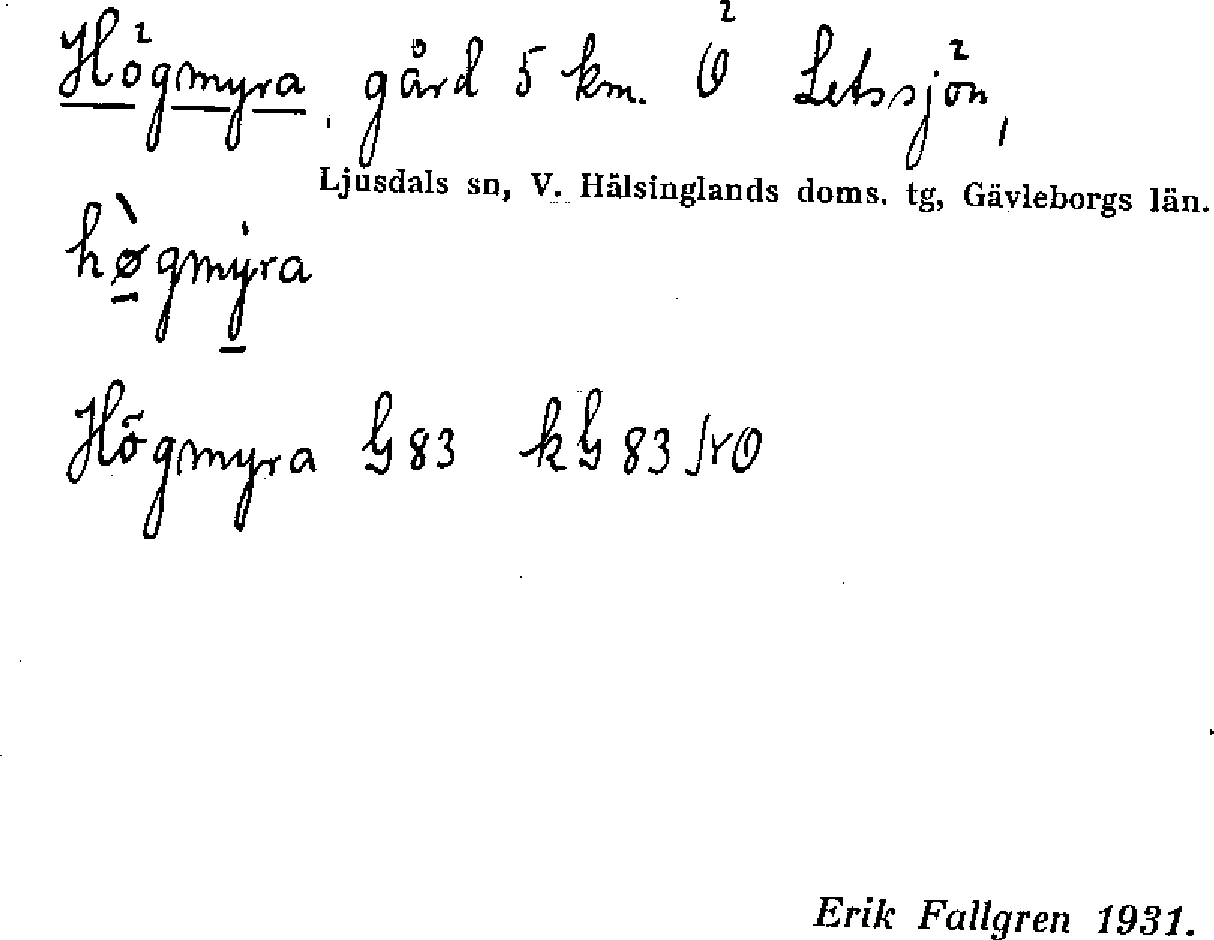 Högmyra, gård 5 km. Ö Letssjön,
Ljusdals sn, V. Hälsinglands doms. tg, Gävleborgs län.
hø̀gmyra
Högmyra G83 kG83
Erik Fallgren 1931.